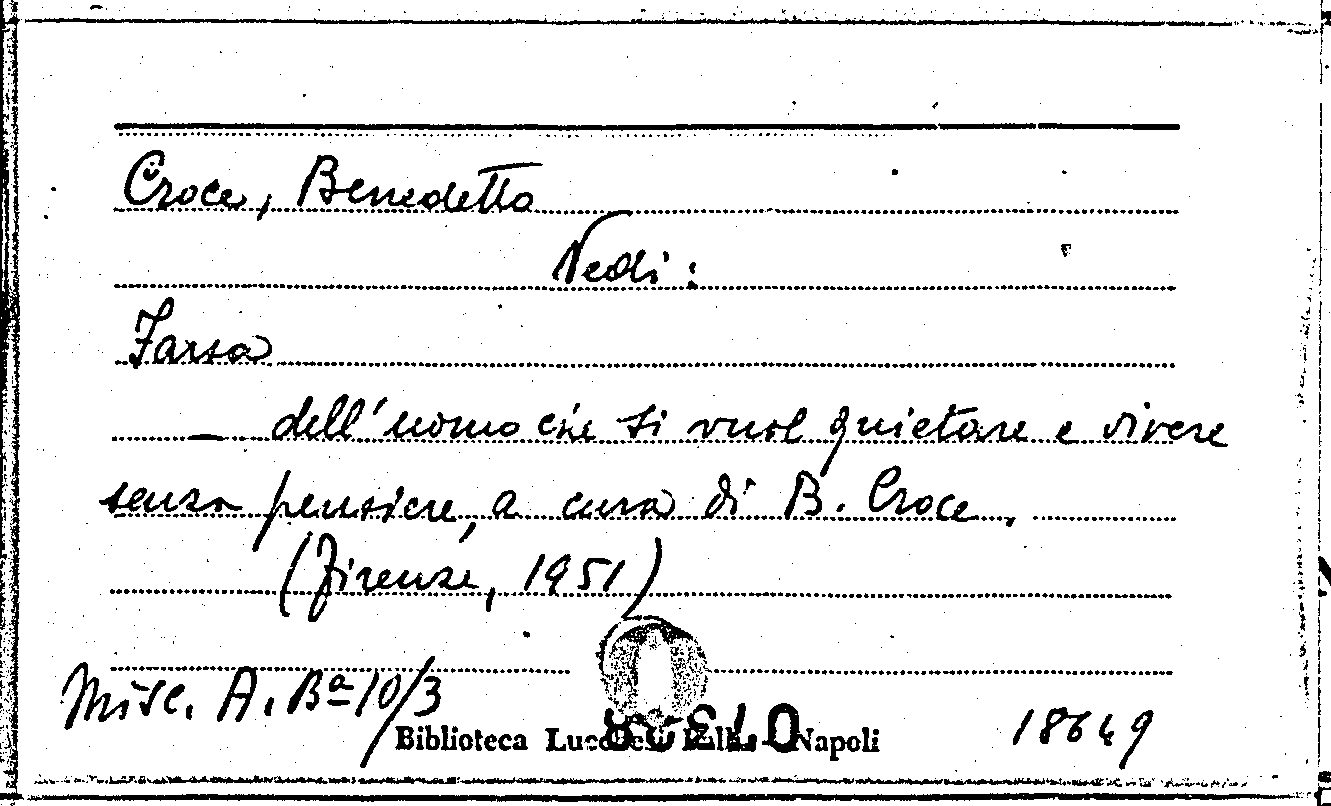 Croce, Benedetto
Vedi:
Farsa
— dell'uomo che si vuol quietare e vivere
senza pensiere, a cura di B. Croce.
(Firenze, 1951)
Misc. A. Bª 10/3
Biblioteca Napoli
18649